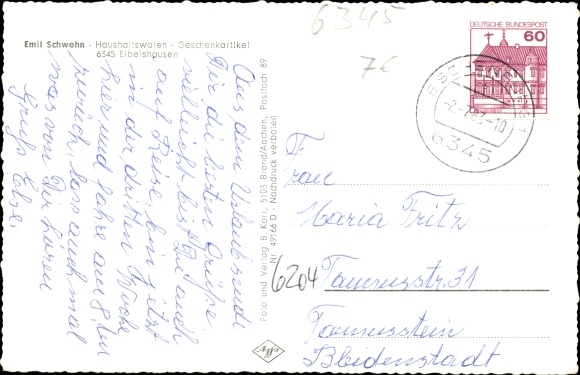 6345
7€
Emil Schwehn - Haushaltswaren - Geschenkartikel
6345 Eibelshausen
DEUTSCHE BUNDESPOST
60
ESCHENBURG 1
83-10
6345
Aus dem Urlaub sende
Dir die besten Grüße.
vielleicht bist Du auch
auf Reise, bin jetzt
in der dritten Woche
hier und fahre am 8. ten
zurück, lass auch mal
was von Dir hören
Gruß Else.
Foto und Verlag B. Korr, 5103 Brand/Aachen, Postfach 89
Nr. 49166 D - Nachdruck verboten
Agfa
Frau
Maria Fritz
6204 Taunusstr. 31
Taunusstein
Bleidenstadt